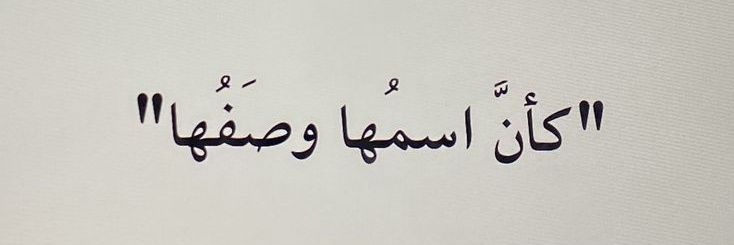 "كأنَّ اسمُها وصَفُها"